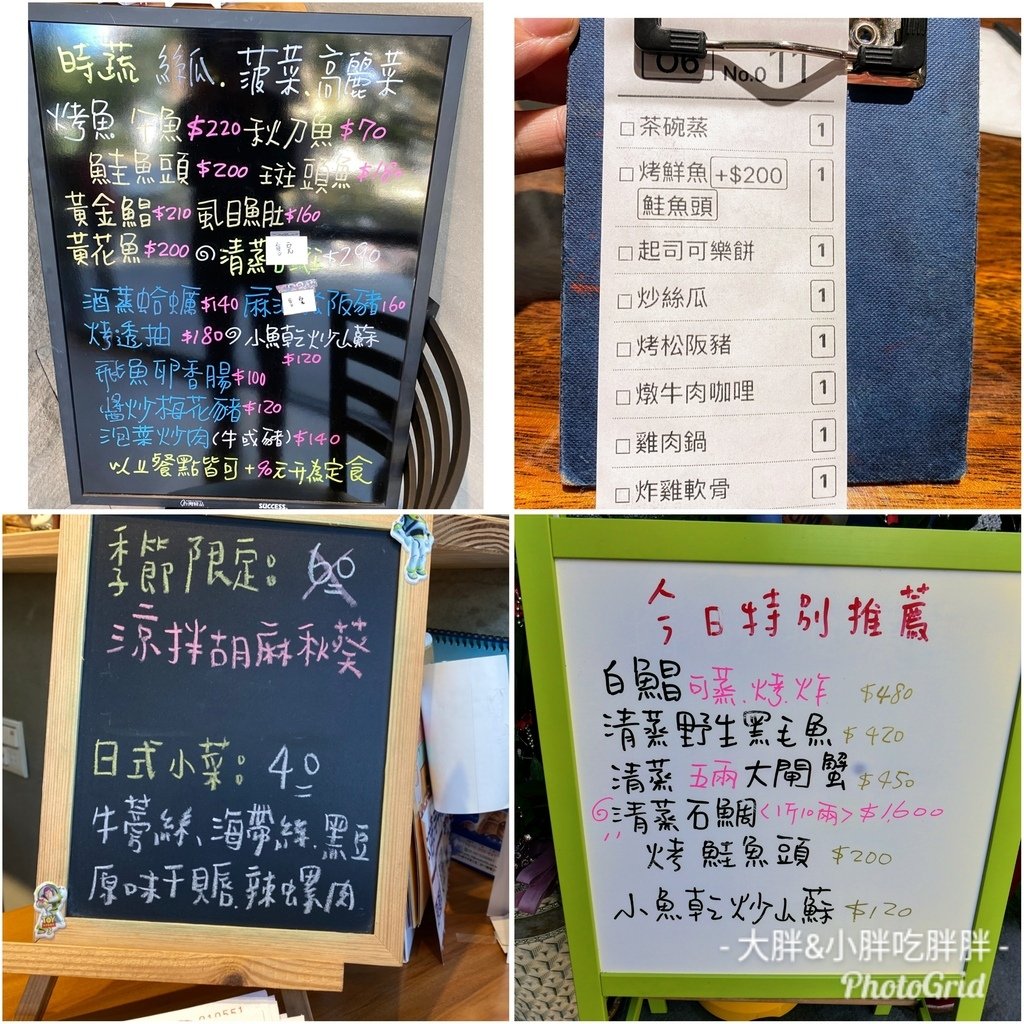 時蔬 絲瓜.菠菜.高麗菜
烤魚 午魚$220 秋刀魚$70
鮭魚頭$200 斑頭魚$180
黃金鯧$210 虱目魚肚$160
黃花魚$200 清蒸 $290
酒蒸蛤蠣$140 麻 阪豬160
烤透抽 $180 小魚乾炒山蘇
$120
飛魚卵香腸$100
醬炒梅花豬$120
泡菜炒肉(牛或豬)$140
以上餐點皆可+90元升為定食
SUCCESS
06 No.011
茶碗蒸 1
烤鮮魚 +$200 1
鮭魚頭
起司可樂餅 1
炒絲瓜 1
烤松阪豬 1
燉牛肉咖哩 1
雞肉鍋 1
炸雞軟骨 1
季節限定: 60
涼拌胡麻秋葵
日式小菜: 40
牛蒡絲、海帶絲.黑豆
原味干貝唇.辣螺肉
今日特別推薦
白鯧 可蒸.烤.炸 $480
清蒸野生黑毛魚 $420
清蒸 五兩 大閘蟹 $450
清蒸石鯛<1斤10兩>$1,600
烤 鮭魚頭 $200
小魚乾炒山蘇 $120
- 大胖&小胖吃胖胖 -
PhotoGrid